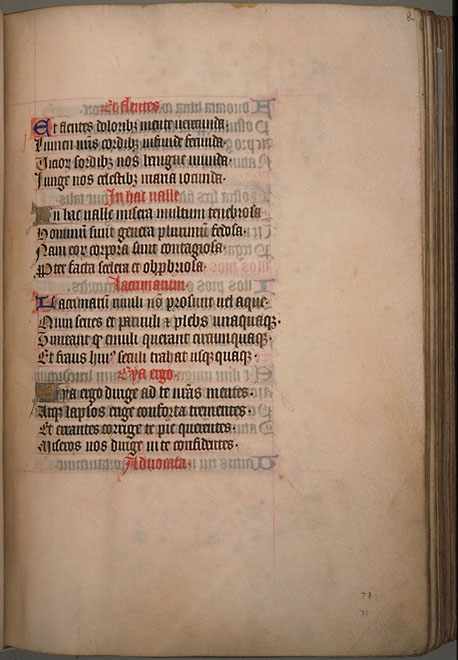 Et flentes
Et flentes doloribz mente veneranda.
Lumen nris cordibz infunde fecunda.
Viror sordibz nos benigne munda.
Iunge nos celestibz maria iocunda.
In hac valle
In hac valle misera multum tenebrosa
Hominum sunt genera plurimum
Nam cor corpora sunt contagiosa.
facta scelera et obprbriosa.
Lacrimarum.
Lacrimarum nimli no prosunt vel aque.
Nunc senes et paruuli z plebs unaquaqz.
q emuli querant circumquaqz.
Et fraus huius seculi trahat usqzquaqz.
Eya ergo.
Eya ergo dirige ad te nras mentes.
Atqz lapsos erige conforta trementes.
Et errantes corrige te pie querentes.
Miseros nos dirige in te confidentes.
Aduocata.
77
71